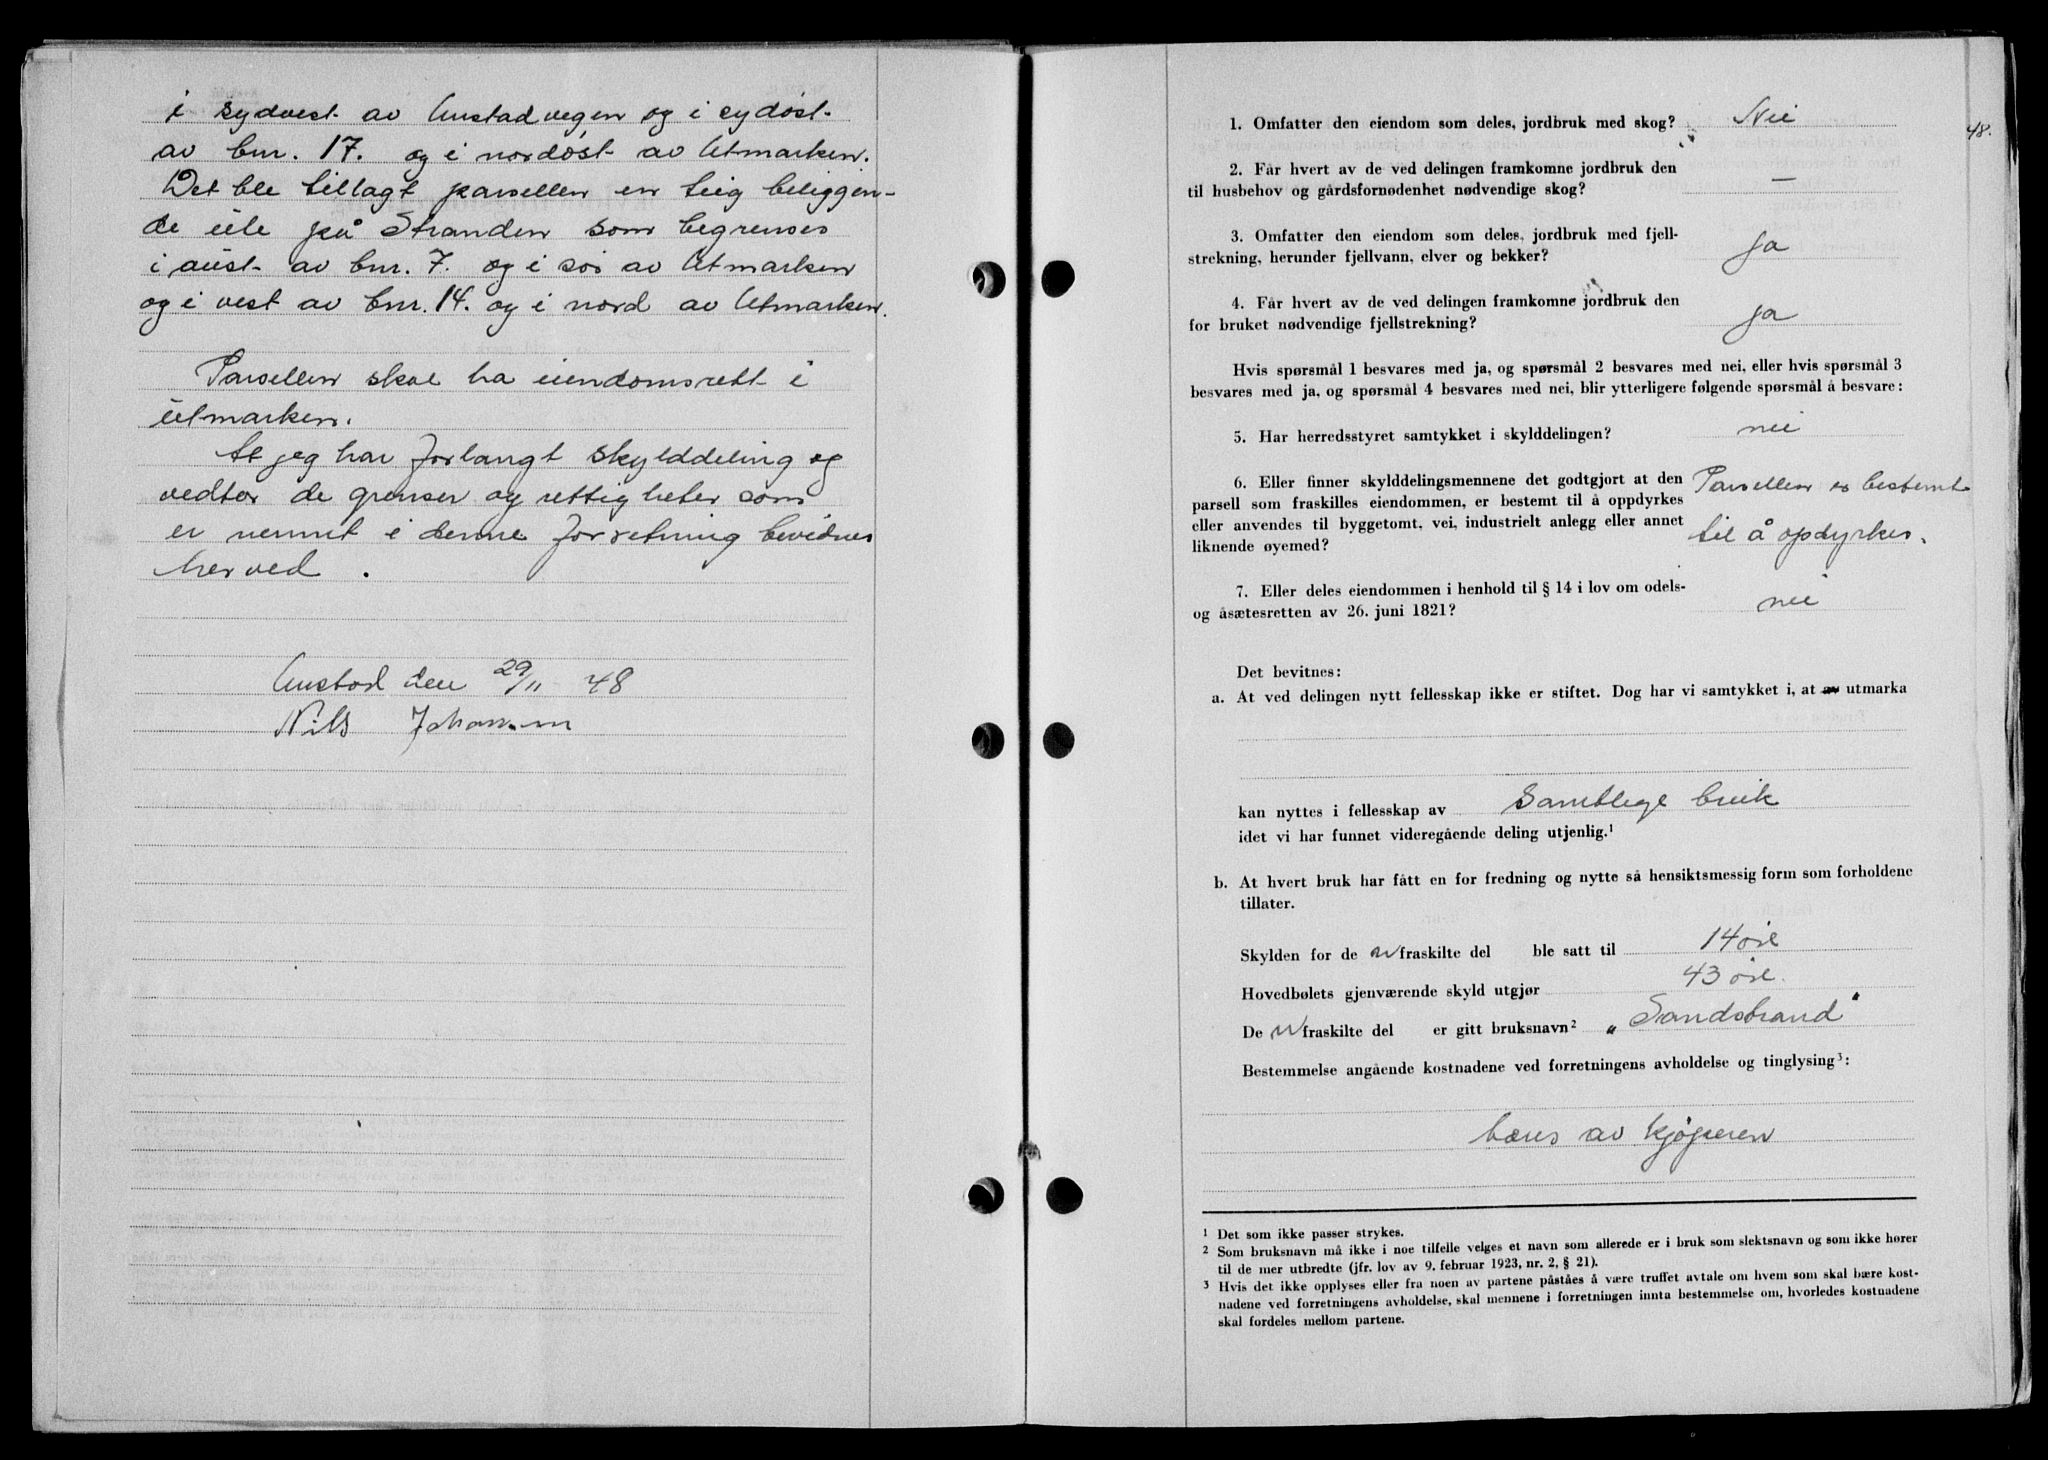 i sydvest av Austadvegen og i sydøst
av bnr. 17. og i nordøst av Utmarken.
Det ble tillagt parsellen en teig beliggen-
de ute på Stranden som begrenses
i aust av bnr. 7. og i sør av Utmarken
og i vest av bnr. 14. og i nord av Utmarken.
Parsellen skal ha eiendomsrett i
utmarken.
At jeg har forlangt skylddeling og
vedtar de grenser og rettigheter som
er nevnt i denne forretning bevidnes
herved.
Austad den 29/11 48
Nils Johansen
48.
1. Omfatter den eiendom som deles, jordbruk med skog? Nei
2. Får hvert av de ved delingen framkomne jordbruk den
til husbehov og gårdsfornødenhet nødvendige skog? —
3. Omfatter den eiendom som deles, jordbruk med fjell-
strekning, herunder fjellvann, elver og bekker? ja
4. Får hvert av de ved delingen framkomne jordbruk den
for bruket nødvendige fjellstrekning? ja
Hvis spørsmål 1 besvares med ja, og spørsmål 2 besvares med nei, eller hvis spørsmål 3
besvares med ja, og spørsmål 4 besvares med nei, blir ytterligere følgende spørsmål å besvare:
5. Har herredsstyret samtykket i skylddelingen? nei
6. Eller finner skylddelingsmennene det godtgjort at den
parsell som fraskilles eiendommen, er bestemt til å oppdyrkes
eller anvendes til byggetomt, vei, industrielt anlegg eller annet
liknende øyemed?
Parsellen er bestemt
til å opdyrkes.
7. Eller deles eiendommen i henhold til § 14 i lov om odels-
og åsætesretten av 26. juni 1821? nei
Det bevitnes:
a. At ved delingen nytt fellesskap ikke er stiftet. Dog har vi samtykket i, at av utmarka
kan nyttes i fellesskap av Samtlige bruk
idet vi har funnet videregående deling utjenlig.¹
b. At hvert bruk har fått en for fredning og nytte så hensiktsmessig form som forholdene
tillater.
Skylden for de fraskilte del ble satt til 14 øre
Hovedbølets gjenværende skyld utgjør 43 øre.
De fraskilte del er gitt bruksnavn² „Sandstrand"
Bestemmelse angående kostnadene ved forretningens avholdelse og tinglysing³:
bæres av kjøperen
¹ Det som ikke passer strykes.
² Som bruksnavn må ikke i noe tilfelle velges et navn som allerede er i bruk som slektsnavn og som ikke hører
til de mer utbredte (jfr. lov av 9. februar 1923, nr. 2, § 21).
³ Hvis det ikke opplyses eller fra noen av partene påståes å være truffet avtale om hvem som skal bære kost-
nadene ved forretningens avholdelse, skal mennene i forretningen innta bestemmelse om, hvorledes kostnadene
skal fordeles mellom partene.